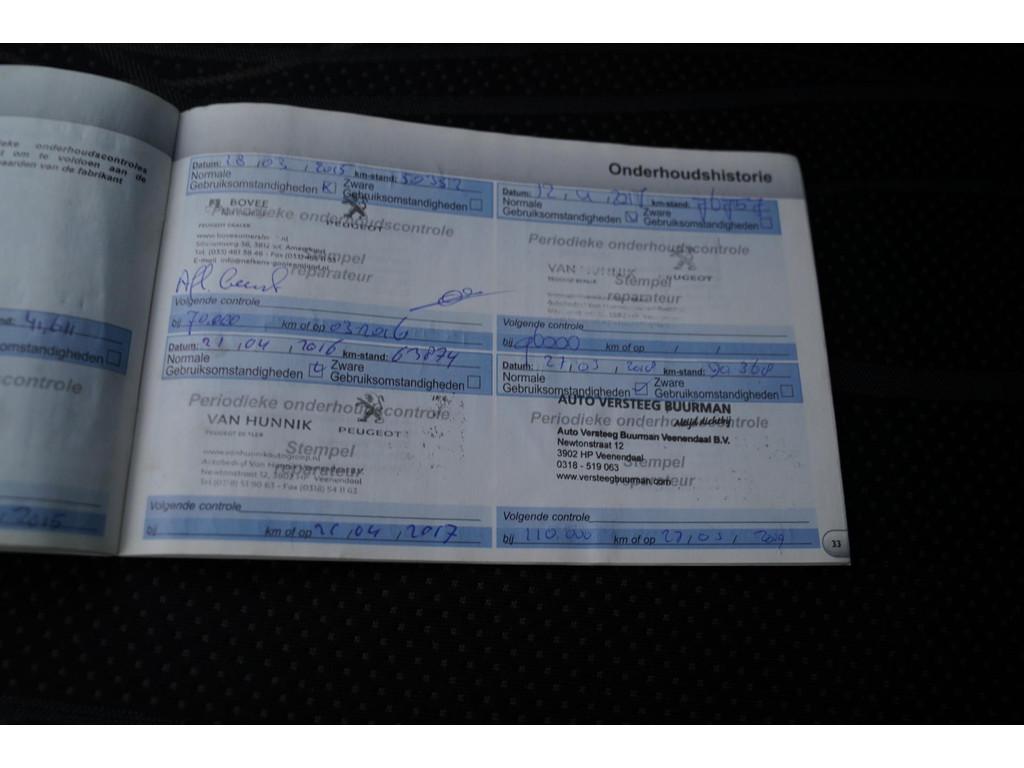 onderhoudscontroles
om te voldoen aan de
van de fabrikant
omstandigheden
controle
2015
Onderhoudshistorie
Datum: 18 , 03 , 2015 km-stand:
Normale
Gebruiksomstandigheden Zware
Gebruiksomstandigheden
BOVEE
PEUGEOT
Periodieke onderhoudscontrole
PEUGEOT DEALER
Stempel
reparateur
Volgende controle
bij 70.000 km of op 03 2016
Datum: 21 , 04 , 2016 km-stand: 63874
Normale
Gebruiksomstandigheden Zware
Gebruiksomstandigheden
Periodieke onderhoudscontrole
VAN HUNNIK PEUGEOT
PEUGEOT DEALER
Stempel
reparateur
Newtonstraat 12, 3902 HP Veenendaal
Tel (0318) 51 90 63 - Fax (0318) 54 11 63
Volgende controle
bij km of op 21 , 04 , 2017
Datum: km-stand:
Normale
Gebruiksomstandigheden Zware
Gebruiksomstandigheden
Periodieke onderhoudscontrole
VAN HUNNIK PEUGEOT
Stempel
reparateur
Volgende controle
bij km of op / /
Datum: 27 , 03 , 2018 km-stand: 90 368
Normale
Gebruiksomstandigheden Zware
Gebruiksomstandigheden
AUTO VERSTEEG BUURMAN
Periodieke onderhoudscontrole
Auto Versteeg Buurman Veenendaal B.V.
Newtonstraat 12
3902 HP Veenendaal
0318 - 519 063
www.versteegbuurman.com
Stempel
reparateur
Volgende controle
bij 110.000 km of op 27 , 03 , 2019
33